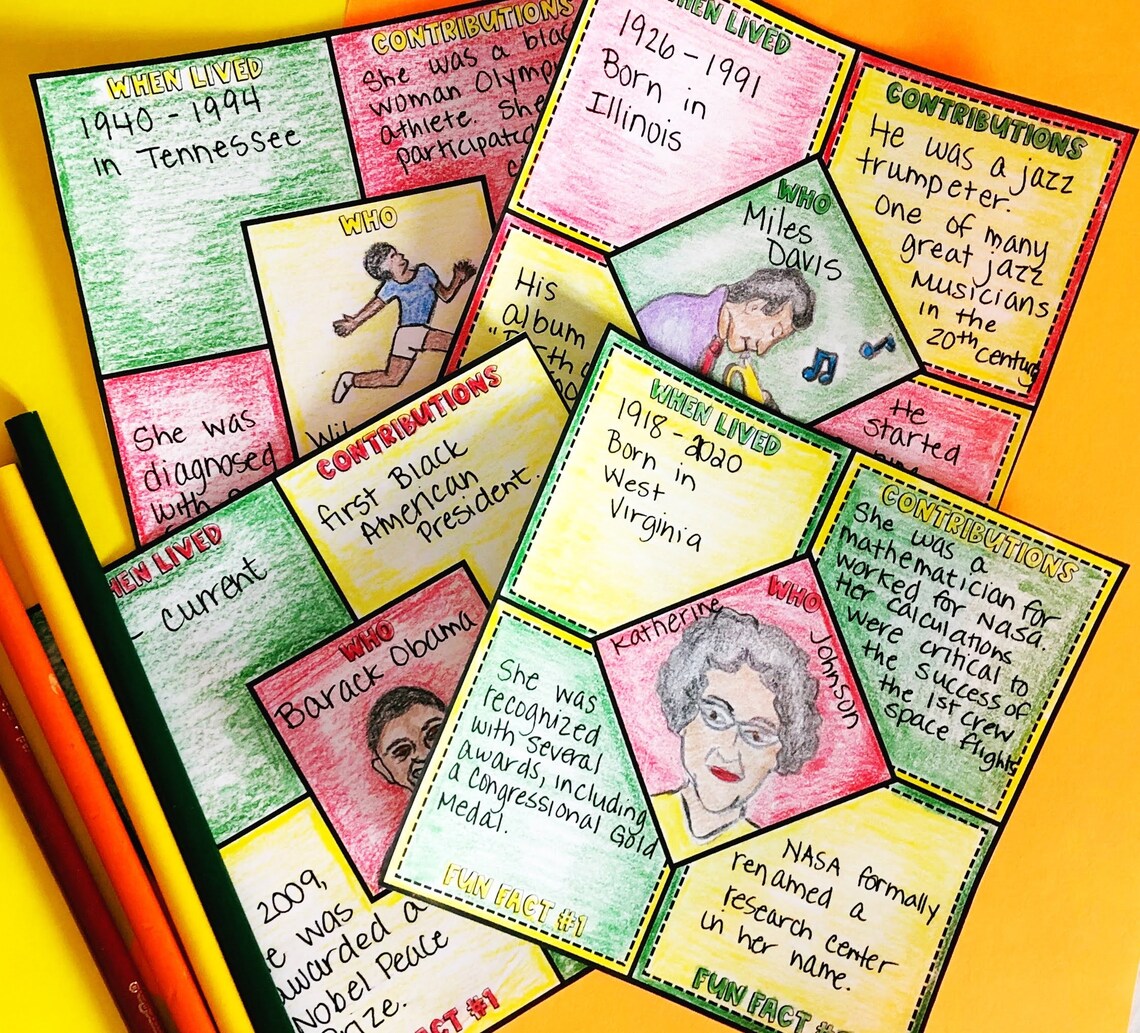 WHEN LIVED
1940 - 1994
in Tennessee
CONTRIBUTIONS
She was a
woman
athlete. She
participated
WHO
She was
diagnosed
with
WHEN LIVED
1926 - 1991
Born in
Illinois
CONTRIBUTIONS
He was a jazz
trumpeter.
One of many
great jazz
Musicians
in the
20th century
WHO
Miles
Davis
His
album
He
started
LIVED
- current
CONTRIBUTIONS
first Black
American
President.
WHO
Barack Obama
2009,
was
awarded a
Nobel Peace
Prize.
#1
WHEN LIVED
1918 - 2020
Born in
West
Virginia
CONTRIBUTIONS
She was a
mathematician for
worked for NASA.
Her calculations
were critical to
the success of
the 1st crew
space flights
WHO
Katherine Johnson
She was
recognized
with several
awards, including
a Congressional Gold
Medal.
FUN FACT #1
NASA formally
renamed a
research center
in her name.
FUN FACT